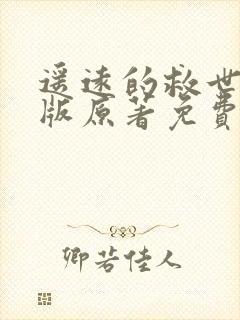 遥远的救世
版原著免费
卿若佳人